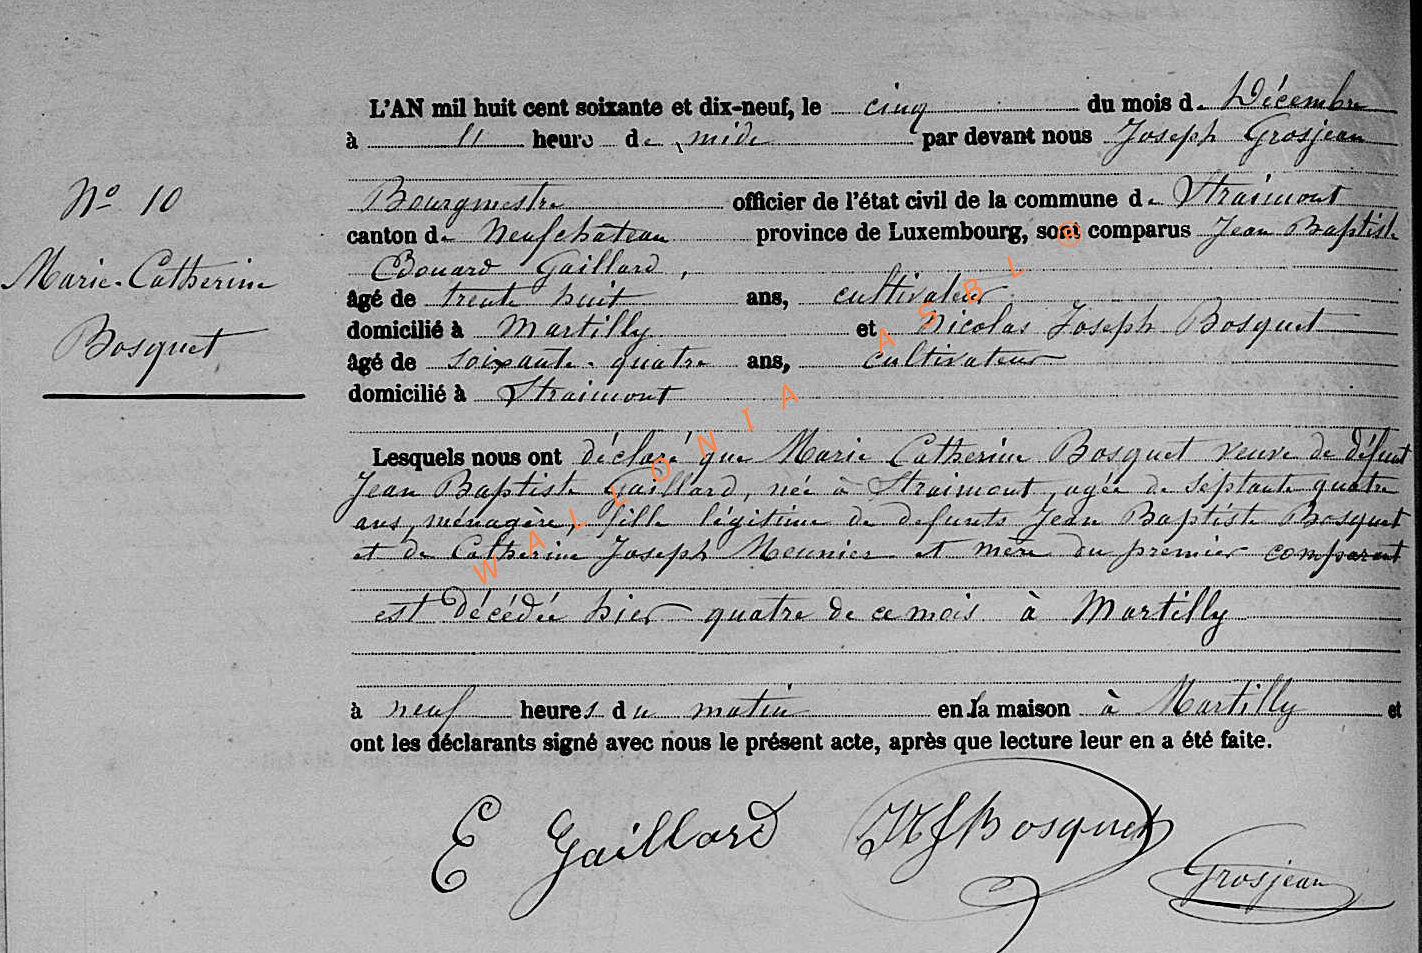 L'AN mil huit cent soixante et dix-neuf, le cinq du mois de Décembre
à 11 heure de midi par devant nous Joseph Grosjean
Bourgmestre officier de l'état civil de la commune de Straimont
canton de Neufchâteau province de Luxembourg, sont comparus Jean Baptiste
Edouard Gaillard,
âgé de trente huit ans, cultivateur
domicilié à Martilly et Nicolas Joseph Bosquet
âgé de soixante-quatre ans, cultivateur
domicilié à Straimont
No 10
Marie-Catherine
Bosquet
Lesquels nous ont déclaré que Marie Catherine Bosquet veuve de défunt
Jean Baptiste Gaillard, née à Straimont, agée de septante quatre
ans, ménagère, fille légitime de defunts Jean Baptiste Bosquet
et de Catherine Joseph Meunier et mère du premier comparant
est décédée hier quatre de ce mois à Martilly
à neuf heures du matin en la maison à Martilly et
ont les déclarants signé avec nous le présent acte, après que lecture leur en a été faite.
E Gaillard NJBosquet
Grosjean
WALLONIA ASBL ®